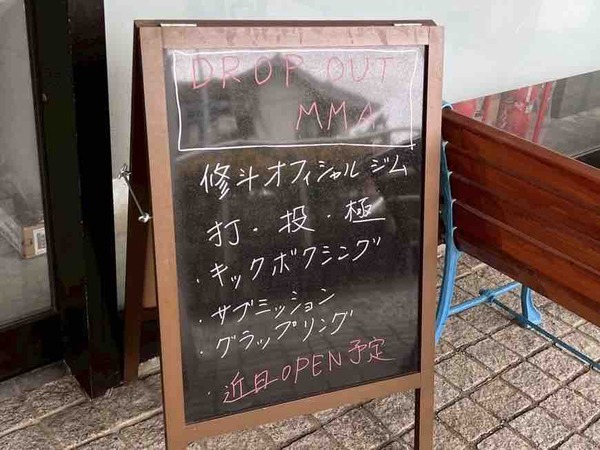 DROP OUT
MMA
修斗オフィシャルジム
打・投・極
・キックボクシング
・サブミッション
・グラップリング
・近日OPEN予定